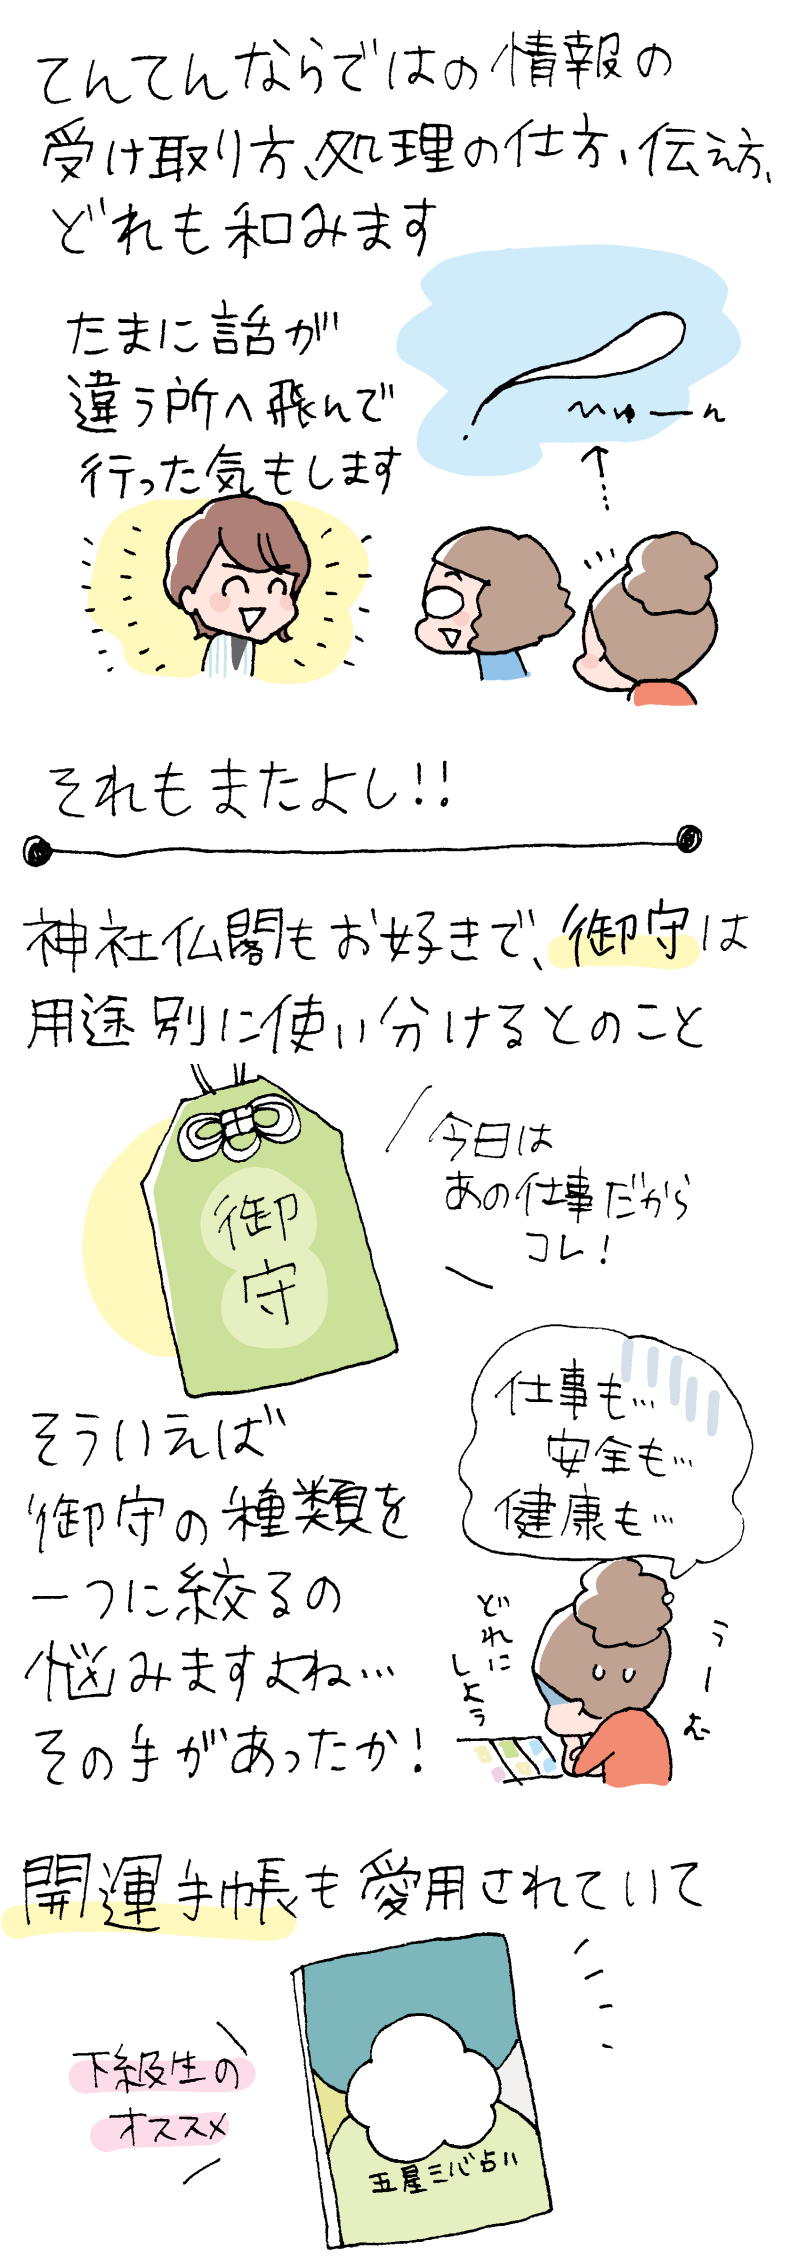 てんてんならではの情報の
受け取り方、処理の仕方、伝え方、
どれも和みます
たまに話が
違う所へ飛んで
行った気もします
ひゅーん
それもまたよし!!
神社仏閣もお好きで、御守は
用途別に使い分けるとのこと
御
守
今日は
あの仕事だから
コレ!
そういえば
御守の種類を
一つに絞るの
悩みますよね…
その手があったか!
仕事も…
安全も…
健康も…
どれに
しよう
うーむ
開運手帳も愛用されていて
下級生の
オススメ
五星三心占い